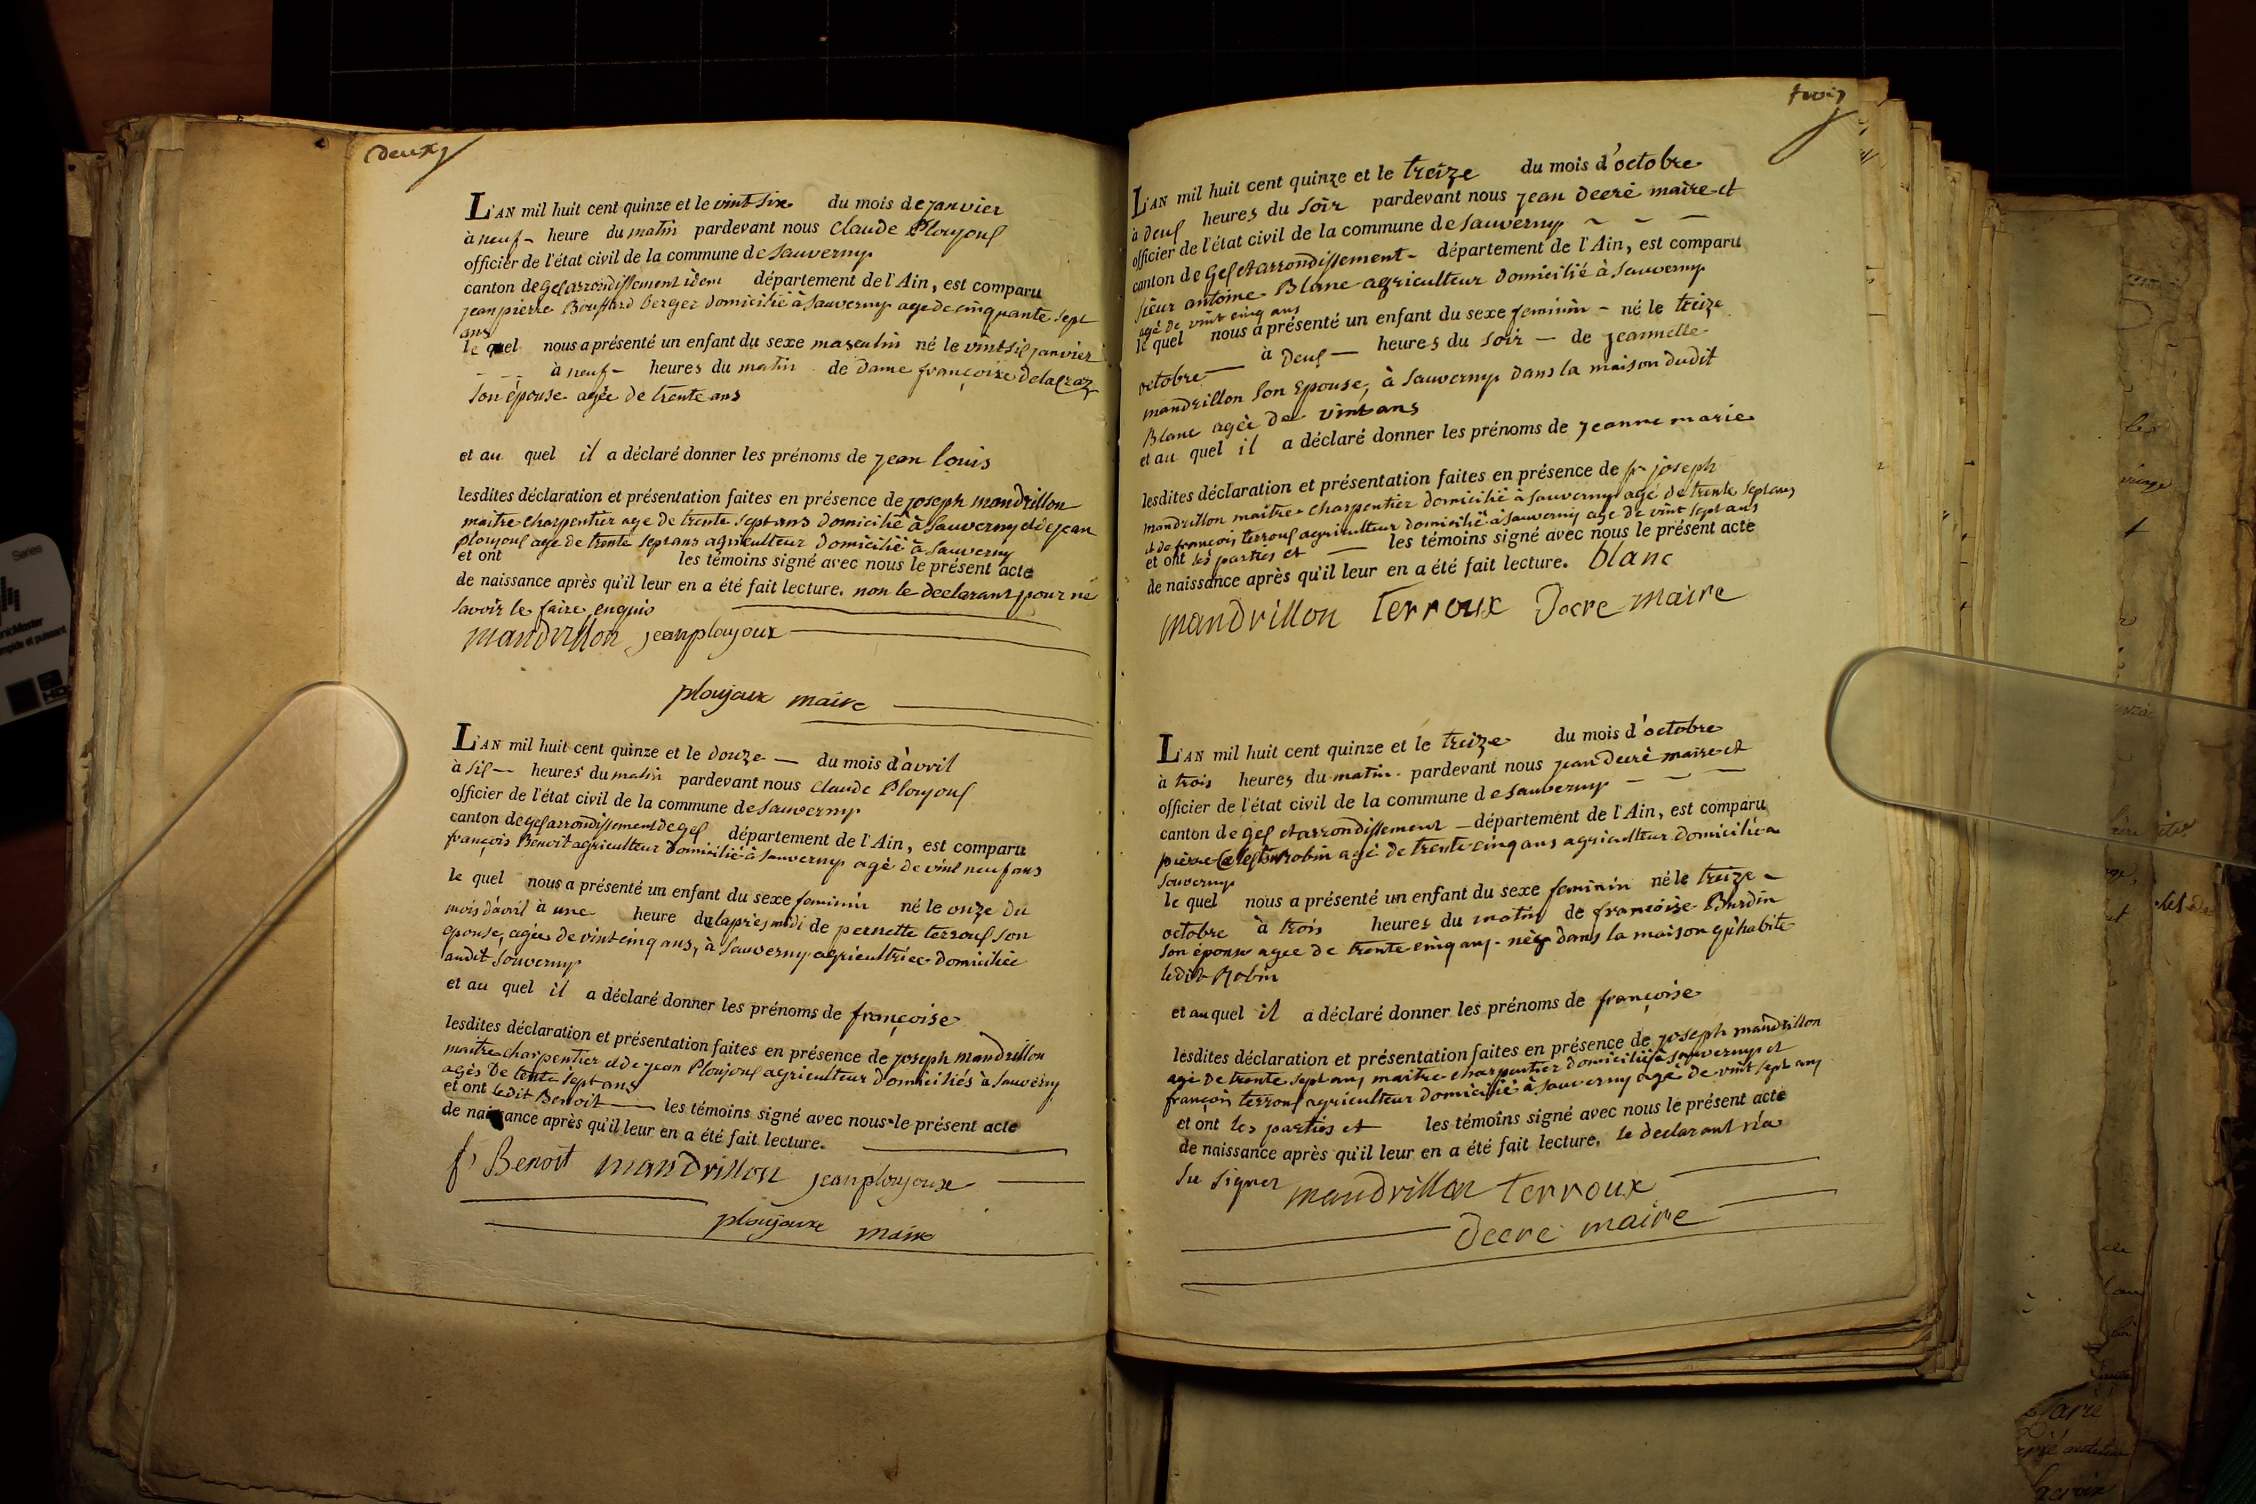 deux
L'AN mil huit cent quinze et le vint six du mois de janvier
à neuf heure du matin pardevant nous Claude Ploujoux
officier de l'état civil de la commune de Sauverny
canton de Gex arrondissement idem département de l'Ain, est comparu
jean pierre Bouffard berger domicilié à Sauverny age de cinquante sept
ans
le quel nous a présenté un enfant du sexe masculin né le vint six janvier
à neuf heures du matin de dame françoise Delacraz
son épouse agée de trente ans
et au quel il a déclaré donner les prénoms de jean louis
lesdites déclaration et présentation faites en présence de joseph mandrillon
maitre charpentier age de trente sept ans domicilié à Sauverny et de jean
Ploujoux age de trente sept ans agriculteur domicilié à Sauverny
et ont les témoins signé avec nous le présent acte
de naissance après qu'il leur en a été fait lecture. non le declarant pour ne
savoir le faire, enquis
mandrillon jean ploujoux
ploujoux maire
L'AN mil huit cent quinze et le douze du mois d'avril
à six heures du matin pardevant nous Claude Ploujoux
officier de l'état civil de la commune de Sauverny
canton de gex arrondissement de gex département de l'Ain, est comparu
françois Benoit agriculteur domicilié à Sauverny agé de vint neuf ans
le quel nous a présenté un enfant du sexe feminin né le onze du
mois d'avril à une heure de l'après midi de pernette terroux son
epouse, agée de vint cinq ans, à Sauverny agricultrice domiciliée
audit Sauverny
et au quel il a déclaré donner les prénoms de françoise
lesdites déclaration et présentation faites en présence de joseph mandrillon
maitre charpentier et de jean Ploujoux agriculteur domiciliés à Sauverny
agés de trente sept ans
et ont ledit Benoit les témoins signé avec nous le présent acte
de naissance après qu'il leur en a été fait lecture.
f. Benoit mandrillon jean ploujoux
ploujoux maire
trois
L'AN mil huit cent quinze et le treize du mois d'octobre
à deux heures du soir pardevant nous jean Decré maire et
officier de l'état civil de la commune de Sauverny
canton de Gex et arrondissement département de l'Ain, est comparu
sieur antoine Blanc agriculteur domicilié à Sauverny
agé de vint cinq ans
le quel nous a présenté un enfant du sexe feminin né le treize
octobre à deux heures du soir de jeannette
mandrillon son epouse, à Sauverny dans la maison dudit
Blanc agée de vint ans
et au quel il a déclaré donner les prénoms de jeanne marie
lesdites déclaration et présentation faites en présence de sr joseph
mandrillon maitre charpentier domicilié à Sauverny agé de trente sept ans
et de françois terroux agriculteur domicilié à Sauverny age de vint sept ans
et ont les parties et les témoins signé avec nous le présent acte
de naissance après qu'il leur en a été fait lecture. blanc
mandrillon terroux Decre maire
L'AN mil huit cent quinze et le treize du mois d'octobre
à trois heures du matin pardevant nous jean Decré maire et
officier de l'état civil de la commune de Sauverny
canton de gex et arrondissement département de l'Ain, est comparu
pierre Robin agé de trente cinq ans agriculteur domicilié a
Sauverny
le quel nous a présenté un enfant du sexe feminin né le treize
octobre à trois heures du matin de françoise Burdin
son épouse agee de trente cinq ans née dans la maison qu'habite
ledit Robin
et au quel il a déclaré donner les prénoms de françoise
lesdites déclaration et présentation faites en présence de joseph mandrillon
agé de trente sept ans maitre charpentier domicilié à Sauverny et
françois terroux agriculteur domicilié à Sauverny agé de vint sept ans
et ont les parties et les témoins signé avec nous le présent acte
de naissance après qu'il leur en a été fait lecture. le declarant n'a
su signer mandrillon terroux
Decre maire